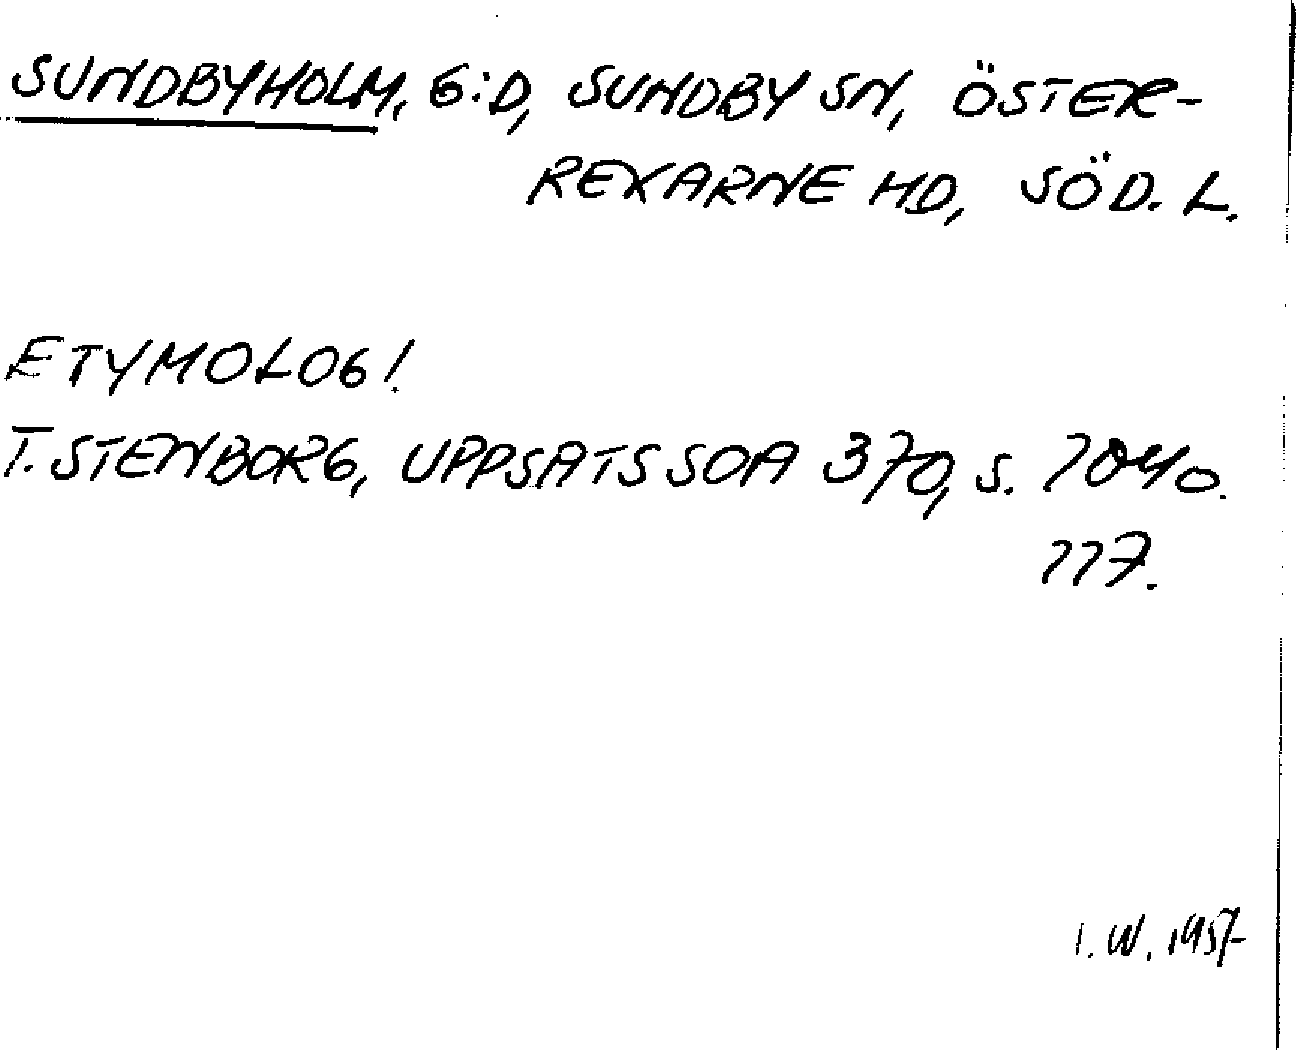 SUNDBYHOLM, G:D, SUNDBY SN, ÖSTER-
REKARNE HD, SÖD. L.
ETYMOLOGI.
T. STENBORG, UPPSATS SOA 370, S. 104 o.
117.
I. W. 1957